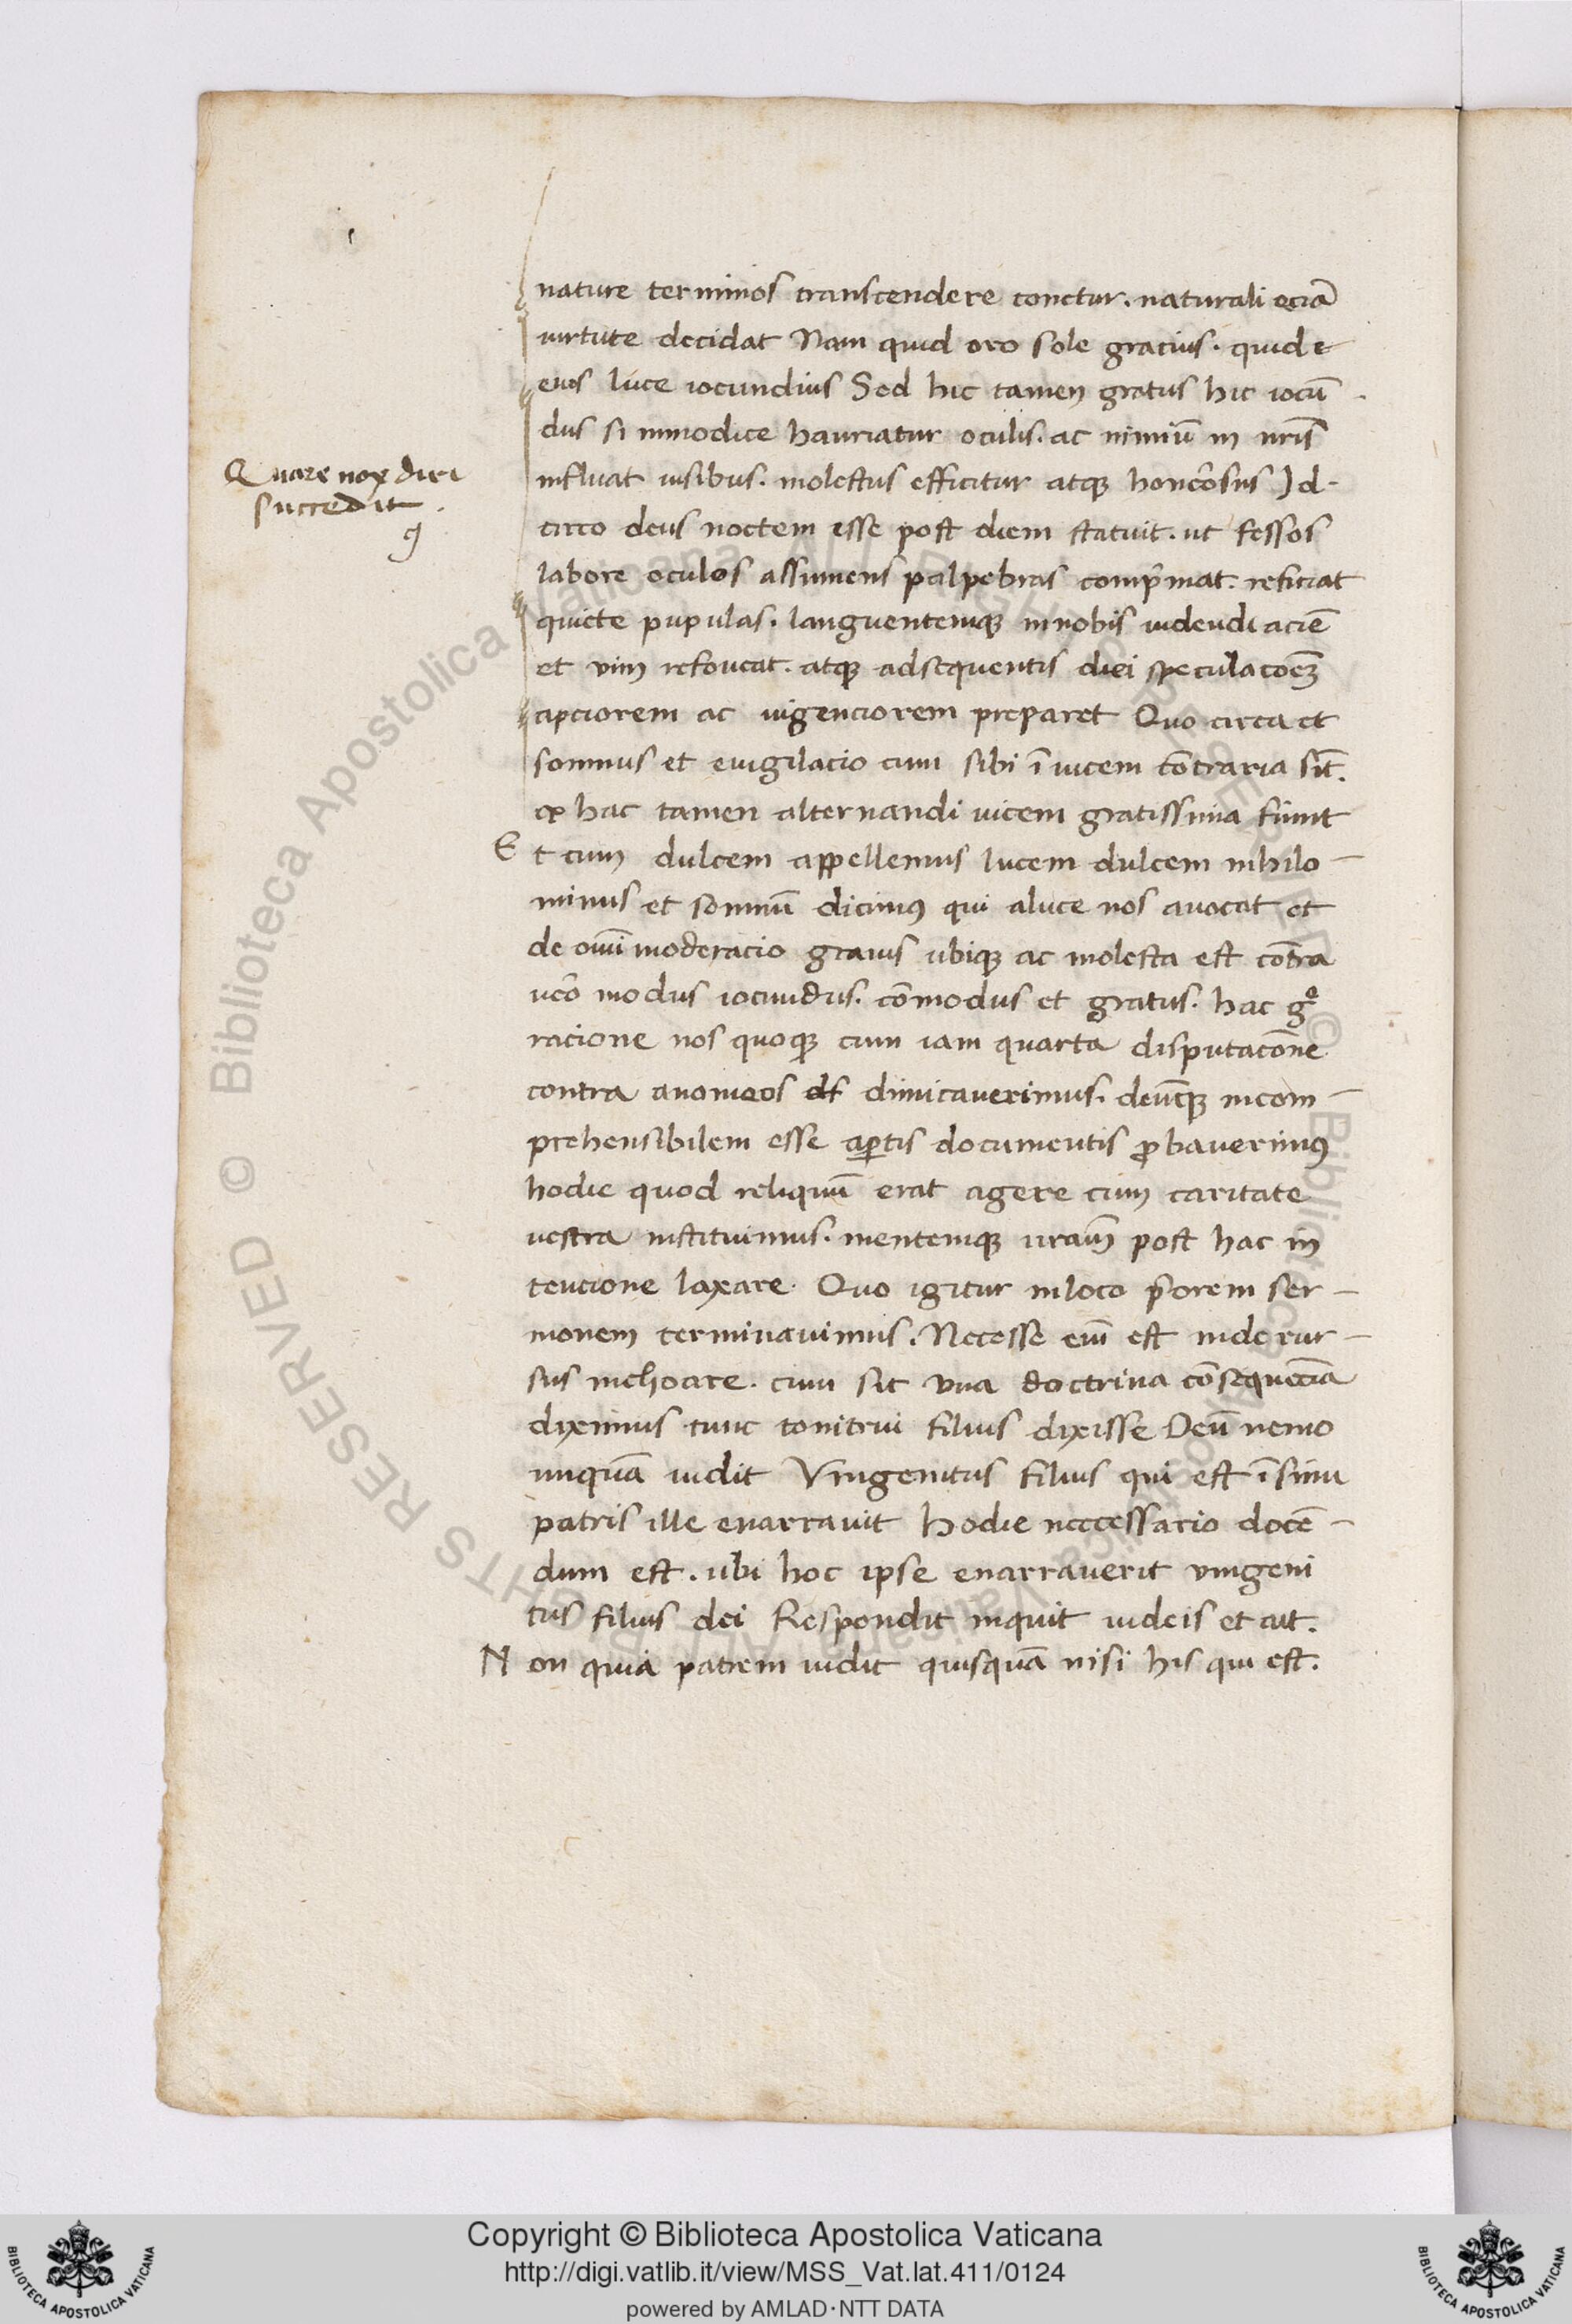 nature terminos transcendere conetur. naturali eciã
uirtute decidat Nam quid oro sole gracius. quid e
eius luce iocundius Sed hic tamen gratus hic iocũ
dus si inmodice hauriatur oculis. ac nimiũ in nr̃is
Quare nox diei
succedit.
influat uisibus. molestus efficitur atqꝫ honer̃osus Id-
circo deus noctem esse post diem statuit. ut fessos
labore oculos assumens palpebras comp̃mat. reficiat
quiete pupulas. languentemqꝫ in nobis uidendi aciẽ
et vim refoueat. atqꝫ adsequentis diei speculacoẽꝫ
apciorem ac uigenciorem preparet Quo circa et
somnus et euigilacio cum sibi ĩ uicem cõtraria sĩt.
ex hac tamen alternandi uicem gratissima fiunt
Et cum dulcem appellemus lucem dulcem nihilo-
minus et somnũ dicimꝰ qui aluce nos auocat et
de om̃i moderacio grauis ubiqꝫ ac molesta est cõtra
uer̃o modus iocundus. cõmodus et gratus. hac gͦ
racione nos quoqꝫ cum iam quarta disputacõne
contra anomeos dimicauerimus. deũqꝫ incom-
prehensibilem esse aꝑtis documentis ꝓbauerimꝰ
hodie quod reliquũ erat agere cum caritate
uestra instituimus. mentemqꝫ ur̃am post hac in
tencione laxare. Quo igitur inloco p̃orem ser-
monem terminauimus. Necesse em̃ est inde rur-
sus inchoare. cum sit vna doctrina cõsequẽcia
diximus tunc tonitrui filius dixisse Deũ nemo
unquã uidit Vnigenitus filius qui est ĩ sinu
patris ille enarrauit hodie neccessario docẽ-
dum est. ubi hoc ipse enarrauerit vnigeni
tus filius dei Respondit inquit iudeis et ait.
Non quia patrem uidit quisquã nisi his qui est.
© Biblioteca Apostolica Vaticana ALL RIGHTS RESERVED
Copyright © Biblioteca Apostolica Vaticana
http://digi.vatlib.it/view/MSS_Vat.lat.411/0124
powered by AMLAD·NTT DATA
BIBLIOTECA APOSTOLICA VATICANA
BIBLIOTECA APOSTOLICA VATICANA